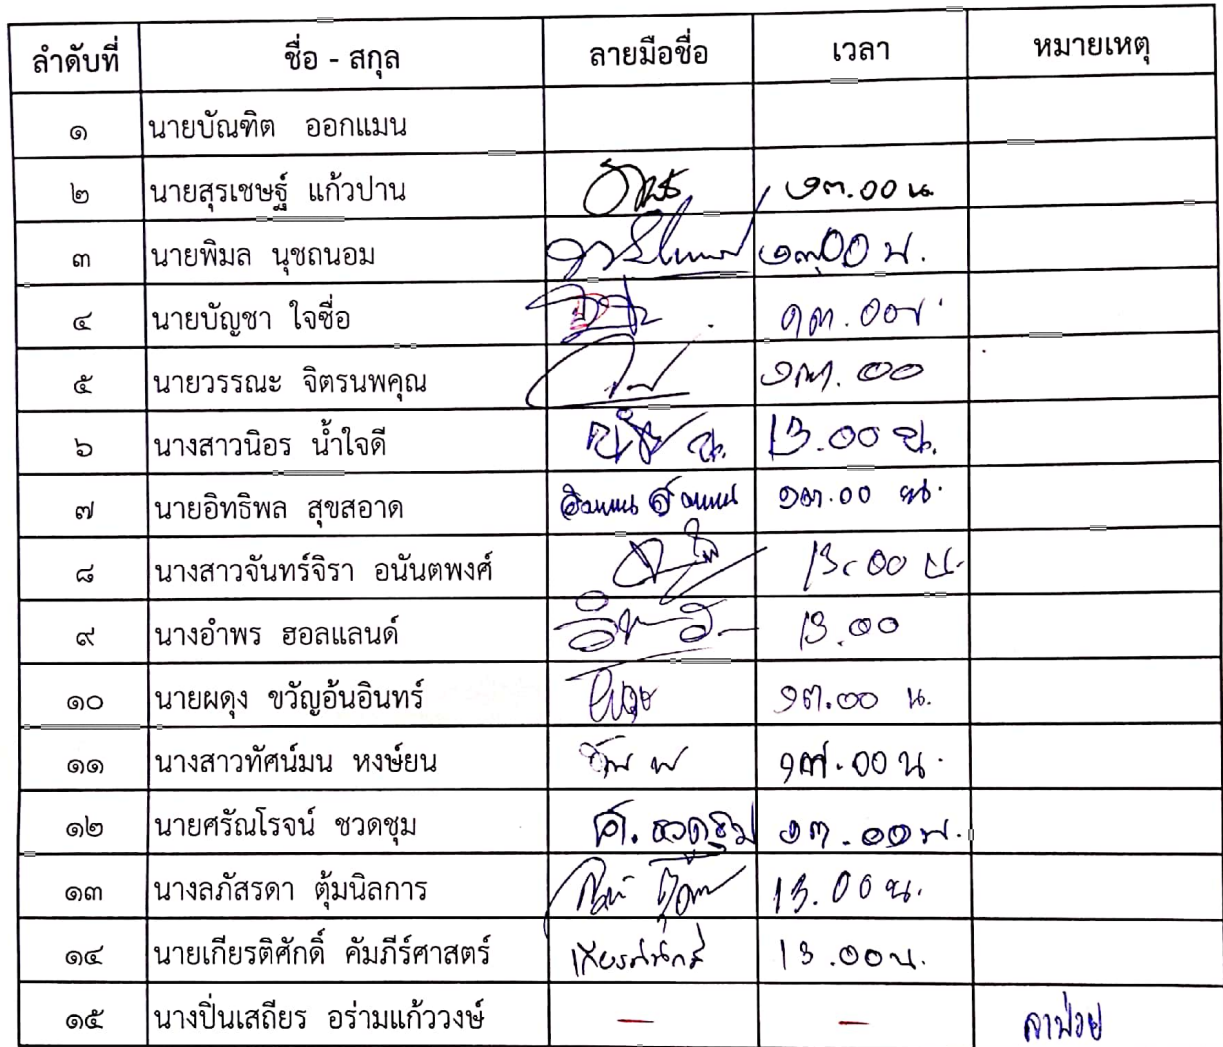 ลำดับที่ ชื่อ - สกุล ลายมือชื่อ เวลา หมายเหตุ
๑ นายบัณฑิต ออกแมน
๒ นายสุรเชษฐ์ แก้วปาน ๑๓.๐๐ น.
๓ นายพิมล นุชถนอม ๑๓.๐๐ น.
๔ นายบัญชา ใจซื่อ ๑๓.๐๐ น.
๕ นายวรรณะ จิตรนพคุณ ๑๓.๐๐
๖ นางสาวนิอร น้ำใจดี 13.00 น.
๗ นายอิทธิพล สุขสอาด ๑๓.๐๐ น.
๘ นางสาวจันทร์จิรา อนันตพงศ์ 13.00 น.
๙ นางอำพร ฮอลแลนด์ 13.00
๑๐ นายผดุง ขวัญอ้นอินทร์ ๑๓.๐๐ น.
๑๑ นางสาวทัศน์มน หงษ์ยน ๑๓.๐๐ น.
๑๒ นายศรัณโรจน์ ชวดชุม ศ. ชวดชุม ๑๓.๐๐ น.
๑๓ นางลภัสรดา ตุ้มนิลการ 13.00 น.
๑๔ นายเกียรติศักดิ์ คัมภีร์ศาสตร์ เกียรติศักดิ์ 13.00 น.
๑๕ นางปิ่นเสถียร อร่ามแก้ววงษ์ — — ลาป่วย